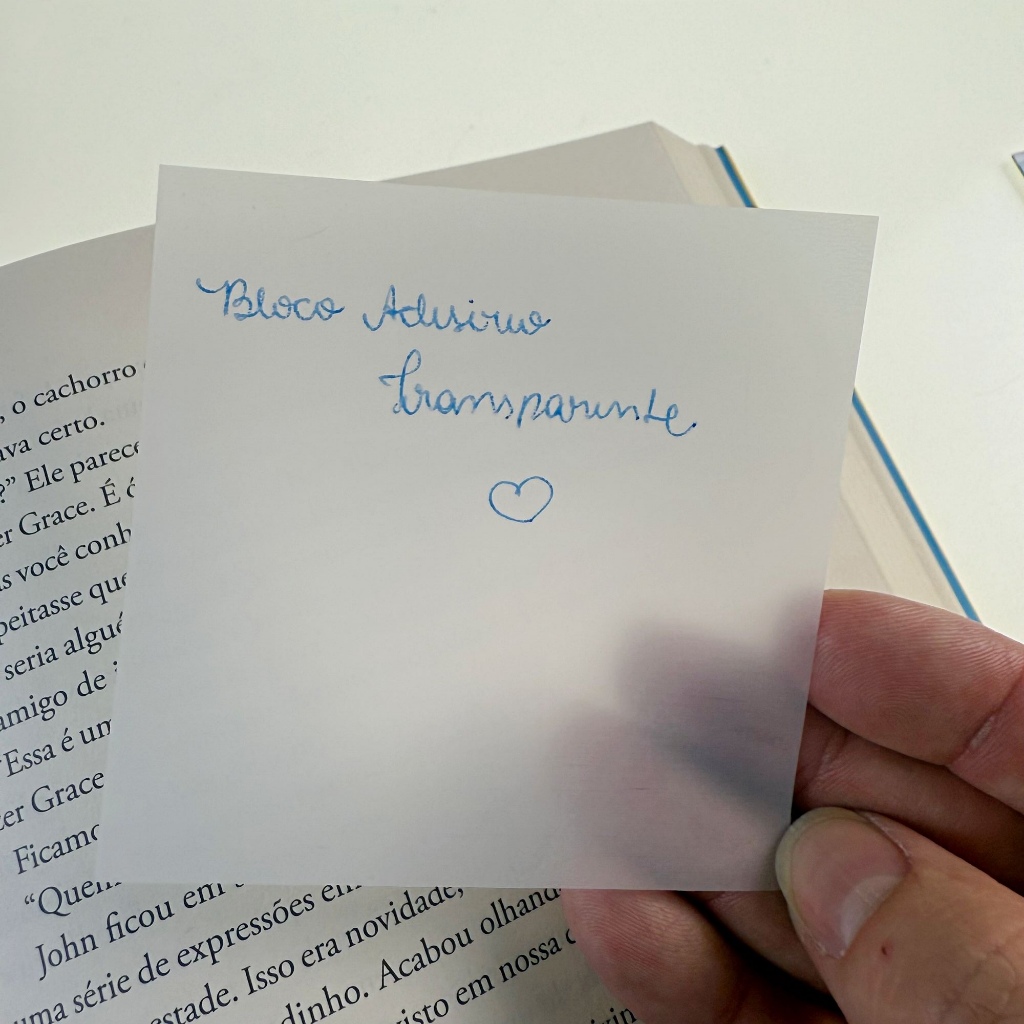 Bloco Adesivo
Transparente
, o cachorro
ava certo.
?” Ele parece
er Grace. É
s você conh
peitasse que
seria algué
amigo de
“Essa é um
cer Grace
Ficamo
“Quem
John ficou em
uma série de expressões em
estade. Isso era novidade,
dinho. Acabou olhand
isto em nossa